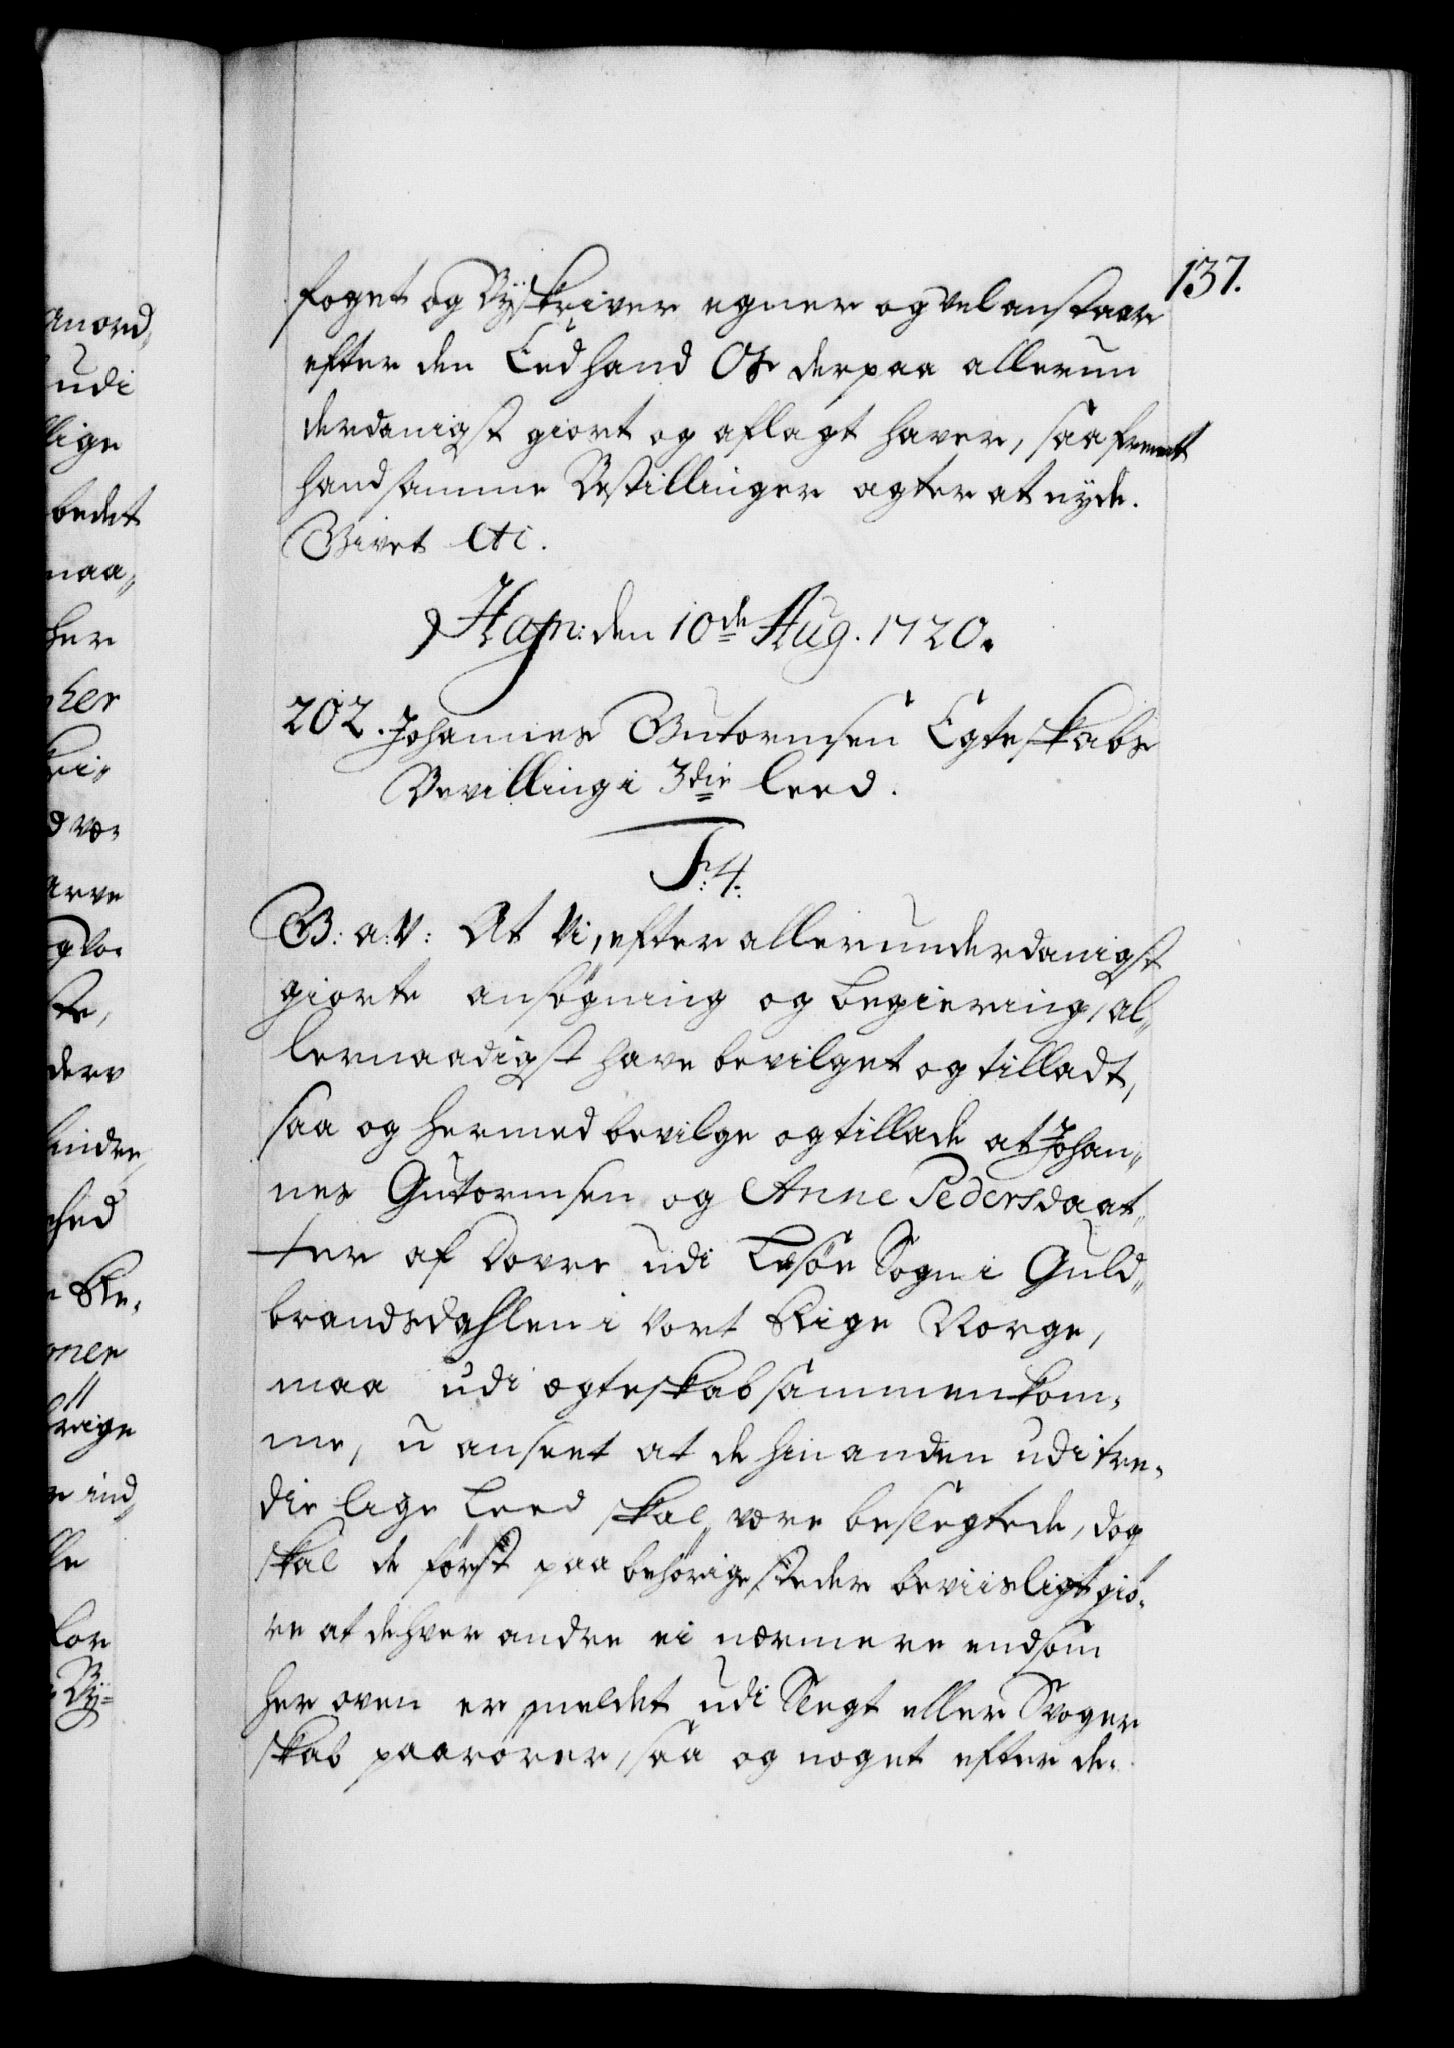 137.
foget og Byskriver egner og vel anstaar
efter den Eed hand Os derpaa allerun
derdanigst giort og aflagt haver, saafremt
hand samme Bestillinger agter at nyde.
Givet etc.
Hafn: den 10de Aug. 1720.
202. Johannes Gutormsen Egteskabs
Bevilling i 3die Leed.
F: 4.
G: a: V: At Vi, efter allerunderdanigst
giorte ansøgning og begiering, al„
lernaadigst have bevilget og tilladt,
saa og hermed bevilge og tillade at Johan„
nes Gutormsen og Anne Pedersdaat„
ter af Dovre udi Lesøe Sogn i Guld„
brandsdahlen i Vort Rige Norge,
maa udi ægteskab sammenkom„
me, u anseet at de hinanden udi tre„
die lige Leed skal være beslegtede, dog
skal de først paa behørige steder beviisligt giø„
re at de hver andre ei nærmere end som
her oven er meldet udi Slegt eller Svoger
skab paarører, saa og noget efter de„
anord„
udi
lige
bedet
maa„
her
her
d væ„
arve
g Vo„
te,
ders
indre,
hed
Re„
mer
rige
ind„
le
for
By„